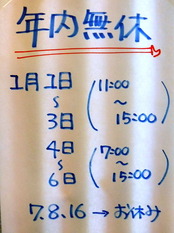 年内無休
1月1日 (11:00
～ ～
3日 15:00)
4日 (7:00
～ ～
6日 15:00)
7.8.16 → お休み